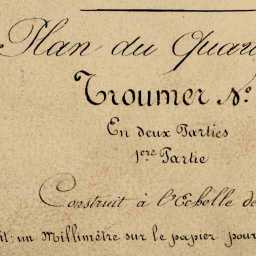 Plan du Quar
Troumer N°
En deux Parties
1ere Partie
Construit à l'Echelle de
it un Millimêtre sur le papier pour